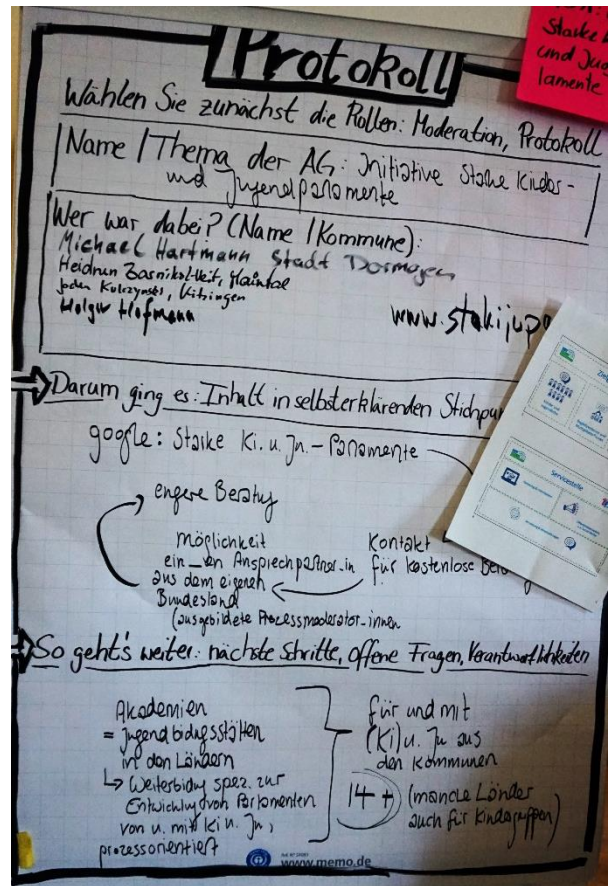 Starke
und Jug
lamente
Protokoll
Wählen Sie zunächst die Rollen: Moderation, Protokoll
Name / Thema der AG: Initiative Starke Kinder-
und Jugendparlamente
Wer war dabei? (Name / Kommune):
Michael Hartmann Stadt Dormagen
Maintal
Kitzingen
Holger Hofmann
www.stakijupa
Darum ging es: Inhalt in selbsterklärenden Stichpun
google: Starke Ki. u. Ju. - Parlamente
Servicestelle
engere Beratung
Möglichkeit
ein_en Ansprechpartner_in
aus dem eigenen
Bundesland
(ausgebildete Prozessmoderator_innen
Kontakt
für kostenlose Beratung
So geht's weiter: nächste Schritte, offene Fragen, Verantwortlichkeiten
Akademien
= Jugendbildungsstätten
in den Ländern
↳ Weiterbildung spez. zur
Entwicklung von Parlamenten
von u. mit Ki u. Ju,
prozessorientiert
für und mit
(Ki) u. Ju aus
den Kommunen
14+ (manche Länder
auch für Kindergruppen)
www.memo.de